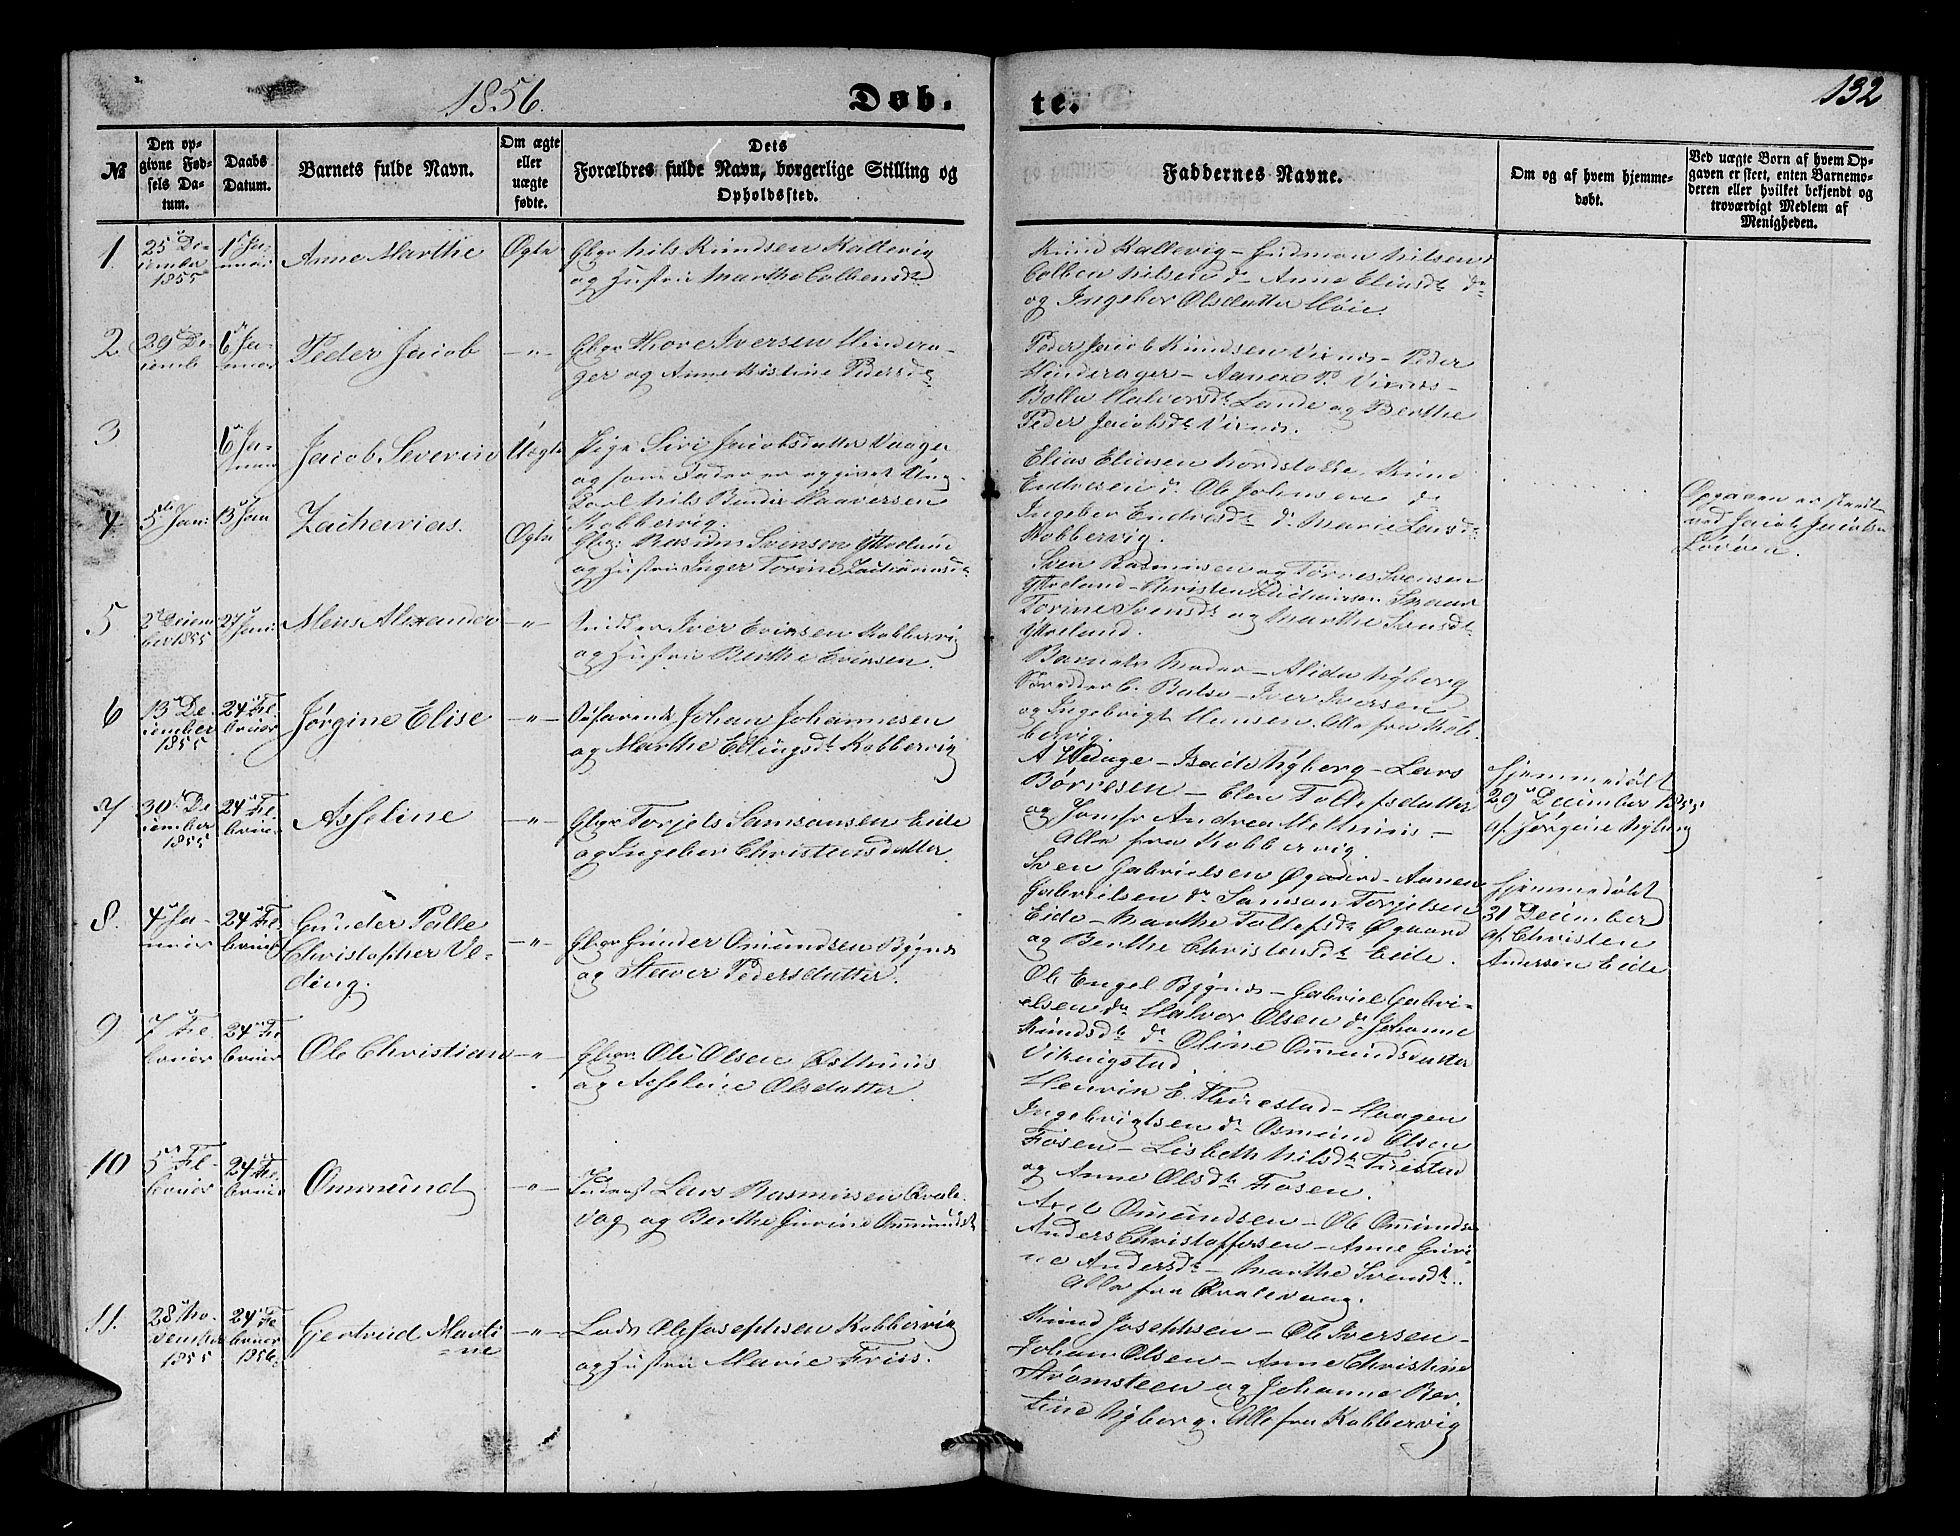 1856.
Døb.
te.
132
№
Den op-
givne Fød-
sels Da-
tum.
Daabs
Datum.
Barnets fulde Navn.
Om ægte
eller
uægte
fødte.
Dets
Forældres fulde Navn, borgerlige Stilling og
Opholdssted.
Faddernes Navne.
Om og af hvem hjemme-
døbt.
Ved uægte Børn af hvem Op-
gaven er skeet, enten Barnemo-
deren eller hvilket bekjendt og
troværdigt Medlem af
Menigheden.
1.
25 De-
cember
1855
1 Ja-
nuar
Anne Marthe
Ægte
Gbgr Nils Knudsen Kallevig
og Hustru Marthe Colbensdr
Knud Kallevig - Gudmon Nilsen
Colben Nilsen do Anne Eliasdr do
og Ingebor Olsdatter Høie.
2
29 De-
cemb
6 Ja-
nuar
Peder Jacob
-"-
Gbgr Thore Iversen Hindera-
ger og Anne Kistine Pedersdr
Peder Jacob Knudsen Vixnes - Peder
Hinderager - Vixnes -
Halvorsdr Lande og Berthe
Peder Jacobsdr Vixnes.
3
6 Ja-
nuar
Jacob Severin
Uægte
Pige Siri Jacobsdatter Vaage
og som Fader er opgivet Ung-
karl Nils Haaversen
Kobbervig.
Elias Eliasen Nordstokke. Knud
Endresen do Ole Johnsen do
Ingebor Endresdr do Marie Larsdr
Kobbervig.
Opgaven er skeet
ved Jacob Jacobsen
4
5te Jan:
13 Jan
Zacharias.
Ægte
Gbgr Rasmus Svensen Ytreland
og Hustru Inger Torine Zachariasdr
Sven Rasmusen og Tørres Svensen
Ytreland - Christen Zachariasen
Torine Svensdr og Marthe Svensdr
Ytreland.
5
2 Decem
ber 1855
27 Jan:
Mens Alexander
-"-
Iver Evensen Kobbervig
og Hustru Berthe Evensen.
Barnets Moder - Alida Nyberg
Iver Iversen
og Ingebrigt Hansen. Alle fra Kob-
bervig.
6
13 De-
cember
1855
24 Fe
bruar
Jørgine Elise
-"-
Søfarende Johan Johannesen
og Marthe Ellingsdr Kobbervig
A Hauge - Nyberg - Lars
Børresen - Elen Tollefsdatter
og Jomfr Andrea
Alle fra Kobbervig.
Hjemmedøbt
29 December 1855
af Jørgine Nyberg
7
30 De
cember
1855
24 Fe
bruar
Asseline
-"-
Gbgr Torjels Samsonsen Eide
og Ingebor Christensdatter.
Sven Gabrielsen Øgaard -
Gabrielsen do Samson Torjelsen
Eide - Marthe Tollefsdr Øgaard
og Berthe Christensdr Eide.
Hjemmedøbt
31 December
af Christen
Andersen Eide
8.
4 Ja-
nuar
24 Fe
bruar
Gunder Palle
Christopher Ve-
ding.
-"-
Gbgr Gunder Omundsen Bygnes
og Pedersdatter.
Ole Engel Bygnes - Gabriel Gabri-
elsen do Halvor Olsen do Johanne
Knudsdr do Oline Omundsdatter
Vikingstad.
9
7 Fe
bruar
24 Fe
bruar
Ole Christian
-"-
Gbgr Ole Olsen Østhuus
og Asseline Olsdatter.
Henrik E. - Haagen
Ingebrigtsen do Osmund Olsen
Fosen - Lisbeth Nilsdr
og Anne Olsdr Fosen.
10
5 Fe-
bruar
24 Fe
bruar
Ommund
-"-
Inderst Lars Rasmusen Qvale-
vog og Berthe Gurine Ommundsdr
Axel Omundsen - Ole Omunds
Anders Christoffersen - Anne Guri-
ne Andersdr - Marthe Svensdr..
Alle fra Qvalevaag.
11.
28 No-
vember
1855
24 Fe
bruar
1856.
Gertrud Marti
=ne
-"-
Lods Ole Josephsen Kobbervig
og Hustru Marie Friis.
Knud Josephsen - Ole Iversen -
Johan Olsen - Anne Christine
Strømsteen og Johanne Ber-
tine Nyberg. Alle fra Kobbervig